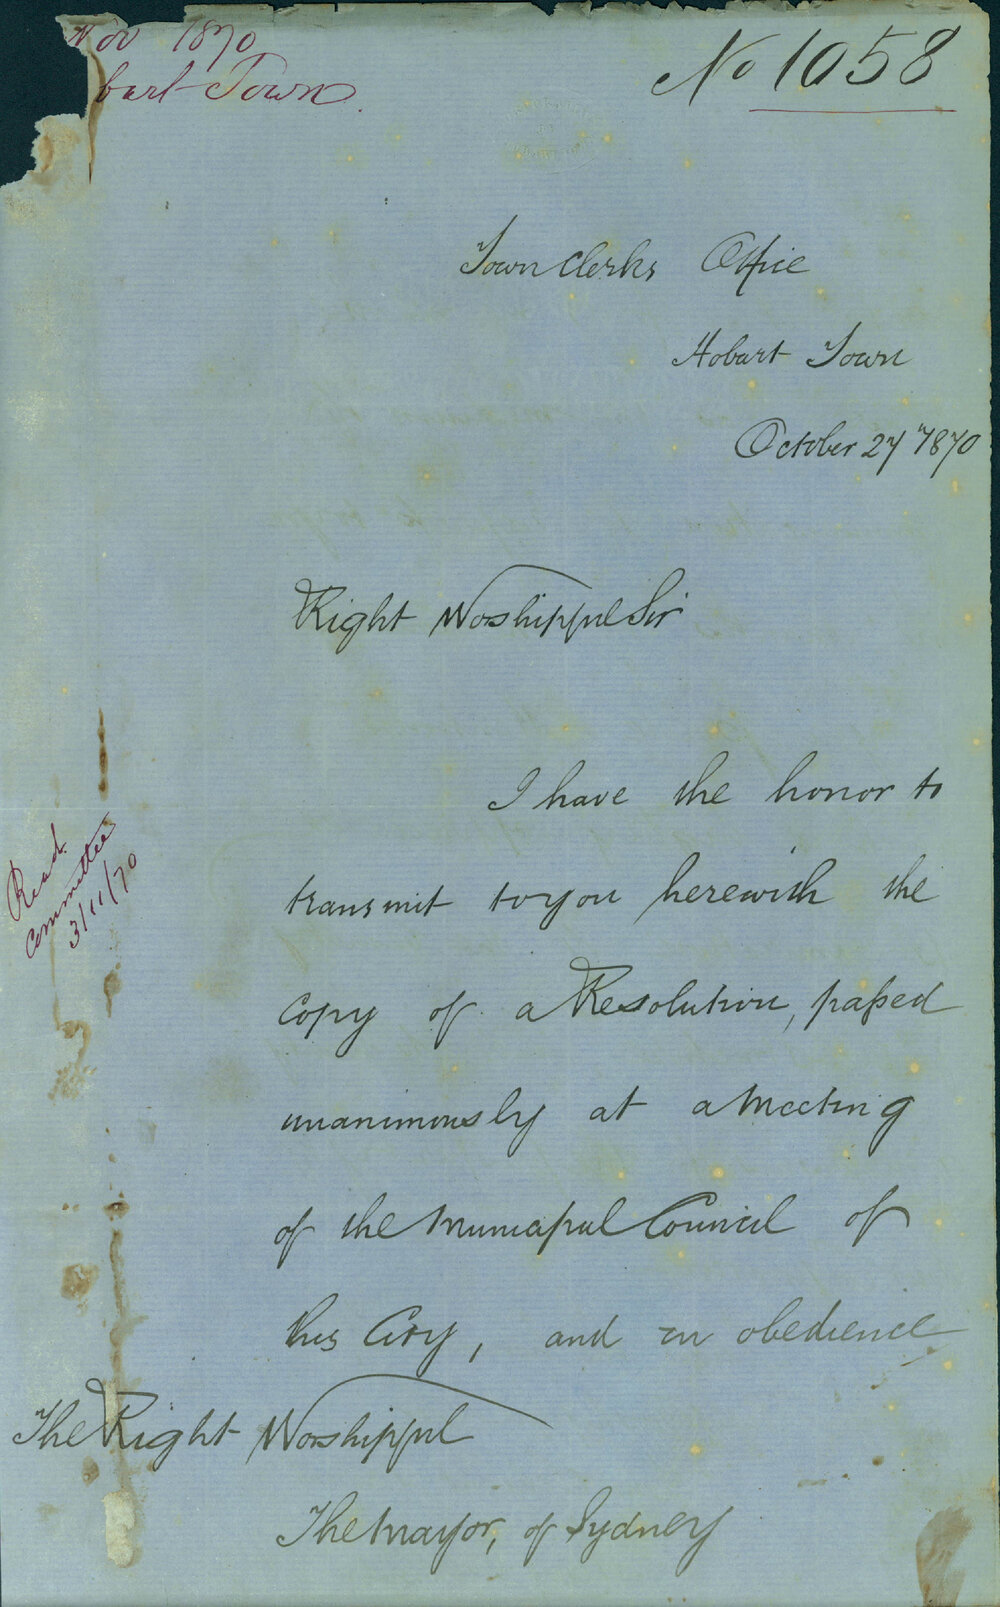 Nov 1870
bart Town.
No 1058
Town Clerks Office
Hobart Town
October 27 1870
Right Worshipful Sir
I have the honor to
transmit to you herewith the
Copy of a Resolution, paßed
unanimously at a Meeting
of the Municipal Council of
this City, and in obedience
Read.
Committee
3/11/70
The Right Worshipful
The Mayor, of Sydney